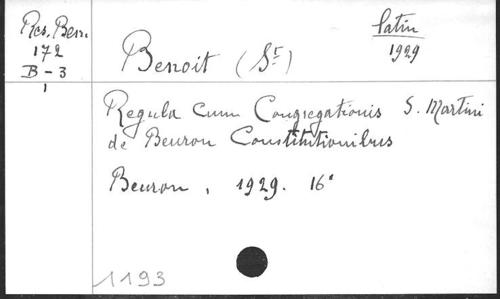 Res. Ben.
172
B - 3
1
latin
1929
Benoit (St)
Regula cum Congregationis S. Martini
de Beuron Constitutionibus
Beuron, 1929. 16°
1193